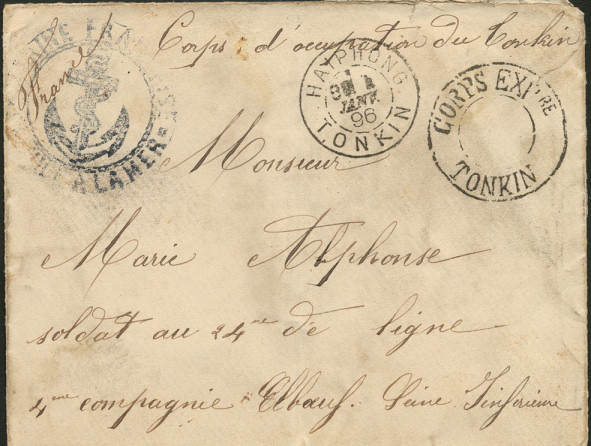 Corps d'occupation du Tonkin
France
HAYPHONG
1
JANV.
96
TONKIN
CORPS EXPRE
TONKIN
A LA MER
Monsieur
Marie Alphonse
soldat au 24me de ligne
4me compagnie Elbœuf. Seine Inférieure